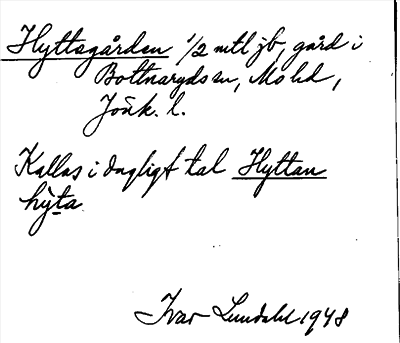 Hyttegården 1/2 mtl jb, gård i
Bottnaryds sn, Mo hd,
Jönk. l.
Kallas i dagligt tal Hyttan
hy̌ta
Ivar Lundahl 1948